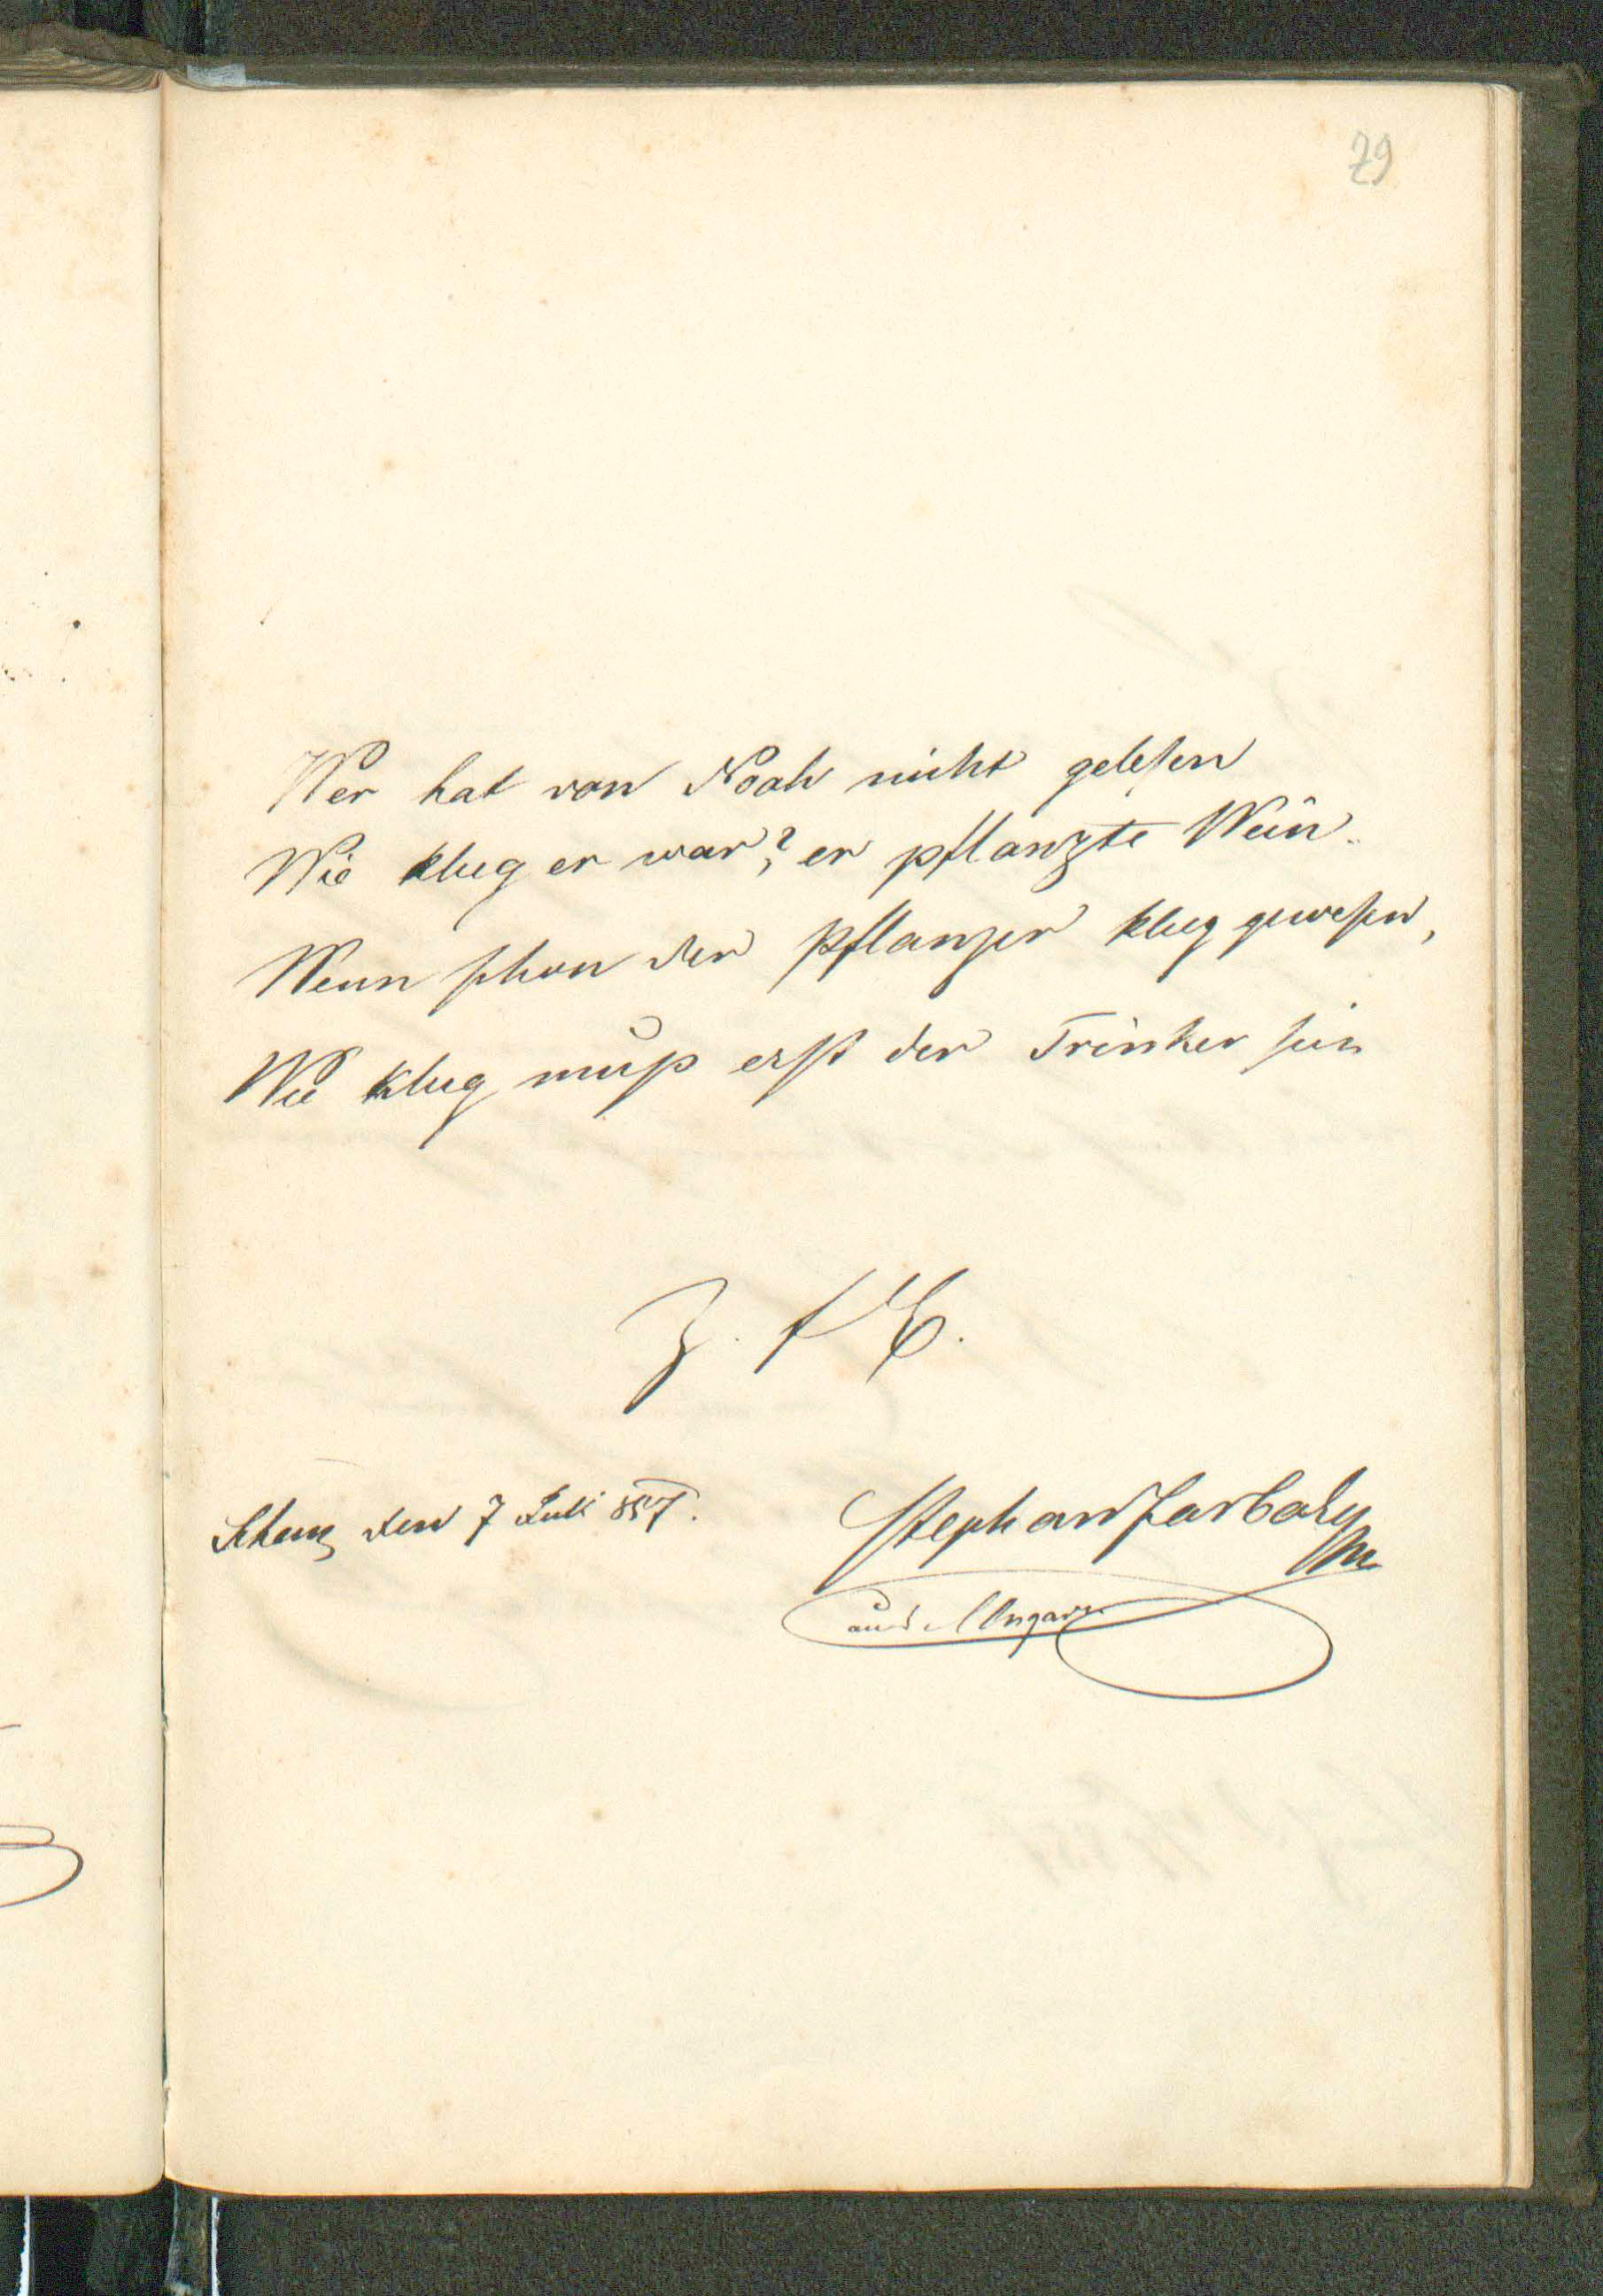 79
Wer hat von Noah nicht gelesen
Wie klug er war? er pflanzte Wein.
Wenn schon der Pflanzer klug gewesen,
Wie klug muß erst der Trinker sein
Z. f E.
den 7 Juli 857.
Stephan
aus Ungarn